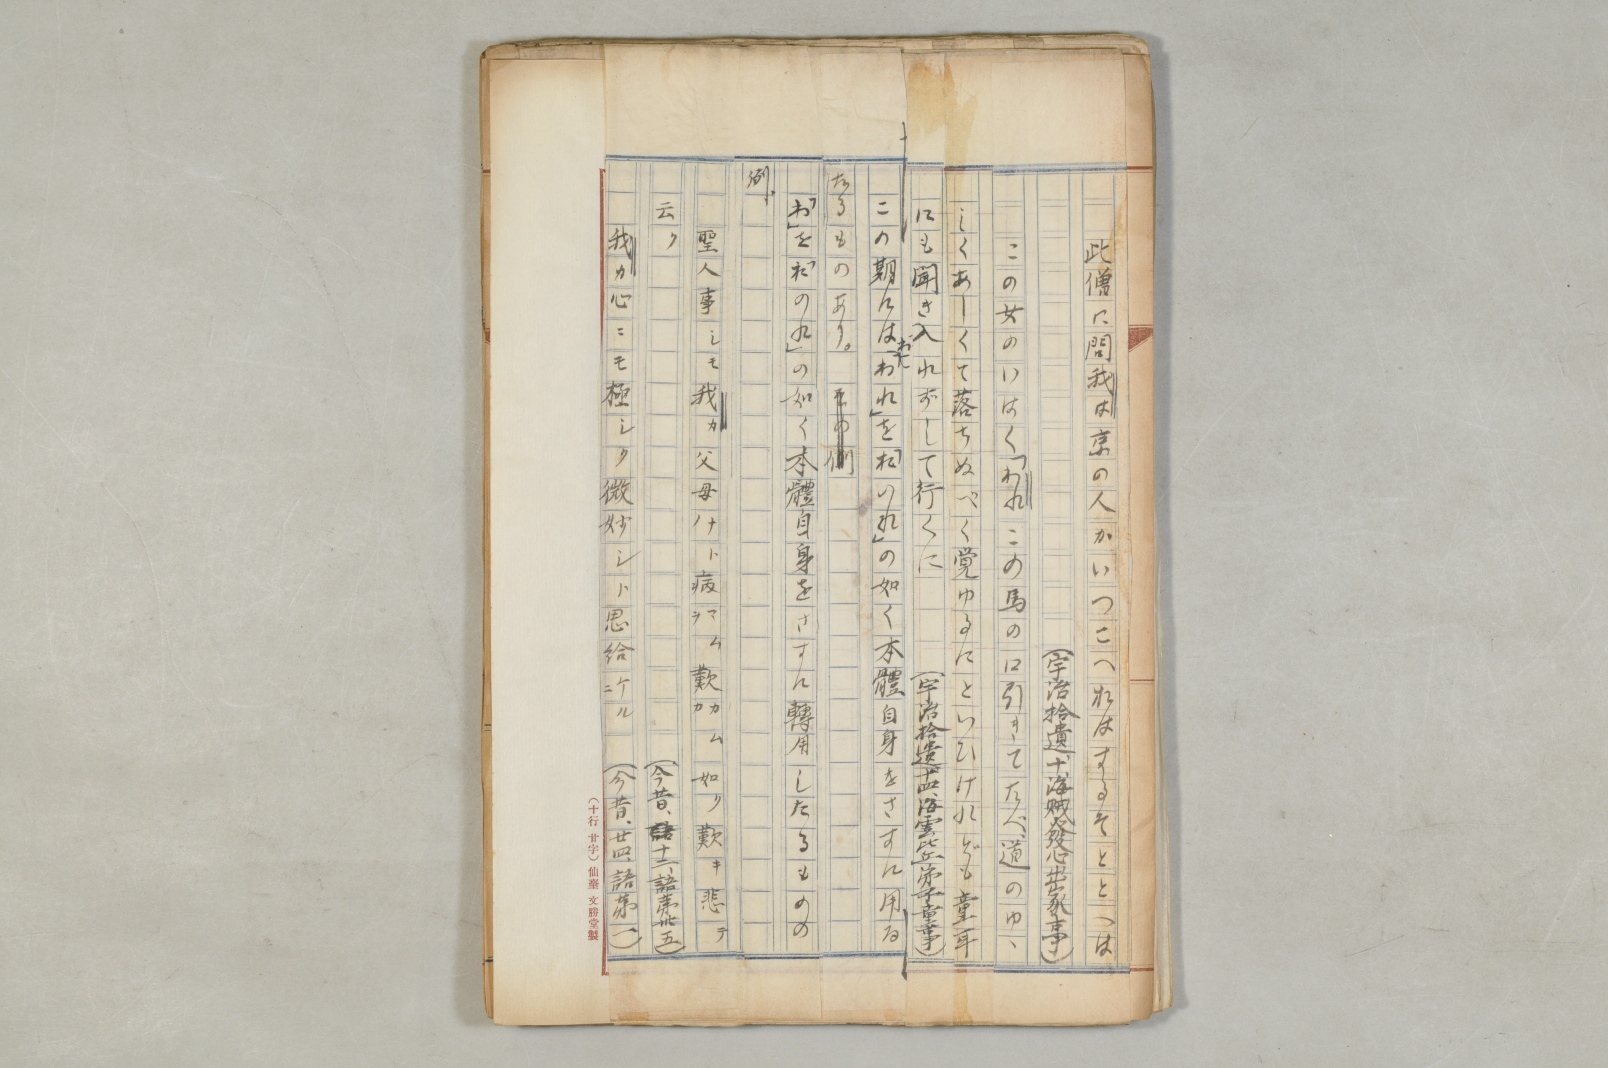 此僧に問我は京の人かいつこへおはするそととへは
(宇治拾遺十、海賊發心出家事)
この女のいはく「われこの馬の口引きてたべ、道のゆゝ
しくあしくて落ちぬべく覚ゆるにといひけれども童耳
にも聞き入れずして行くに
(宇治拾遺十四、海雲比丘弟子童事)
この期には「われ」を「おのれ」の如く本體自身をさすに用ゐ
また
たるものあり。その例
「わ」を「おのれ」の如く本體自身をさすに轉用したるものの
例、
聖人事シモ我カ父母ナトハ病マムヲ歎カムカ如ク歎キ悲テ
云々
(今昔、十二、語第卅五)
我カ心ニモ極シク微妙シト思給ケルニ
(今昔、廿四、語第一)
(十行廿字)仙臺 文勝堂製